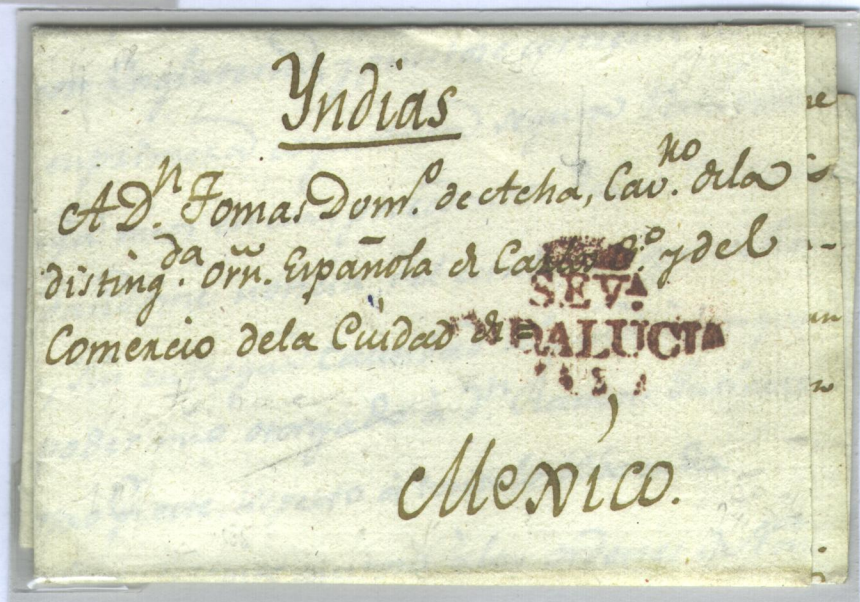 Yndias
A D.n Tomas Dom.o de Acha, Cav.ro de la
disting.da Orn. Española de Carlos 3.o y del
Comercio de la Ciudad de
SEV.A
DALUCIA
Mexico.